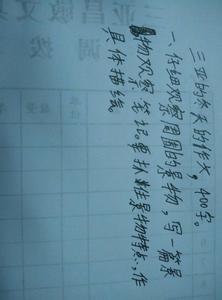 三亚昌敏文
调拨
三亚的冬天的作文,400字。
一、仔细观察周围的景物,写一篇景
物观察笔记。要抓住景物特点,作
具体描绘。